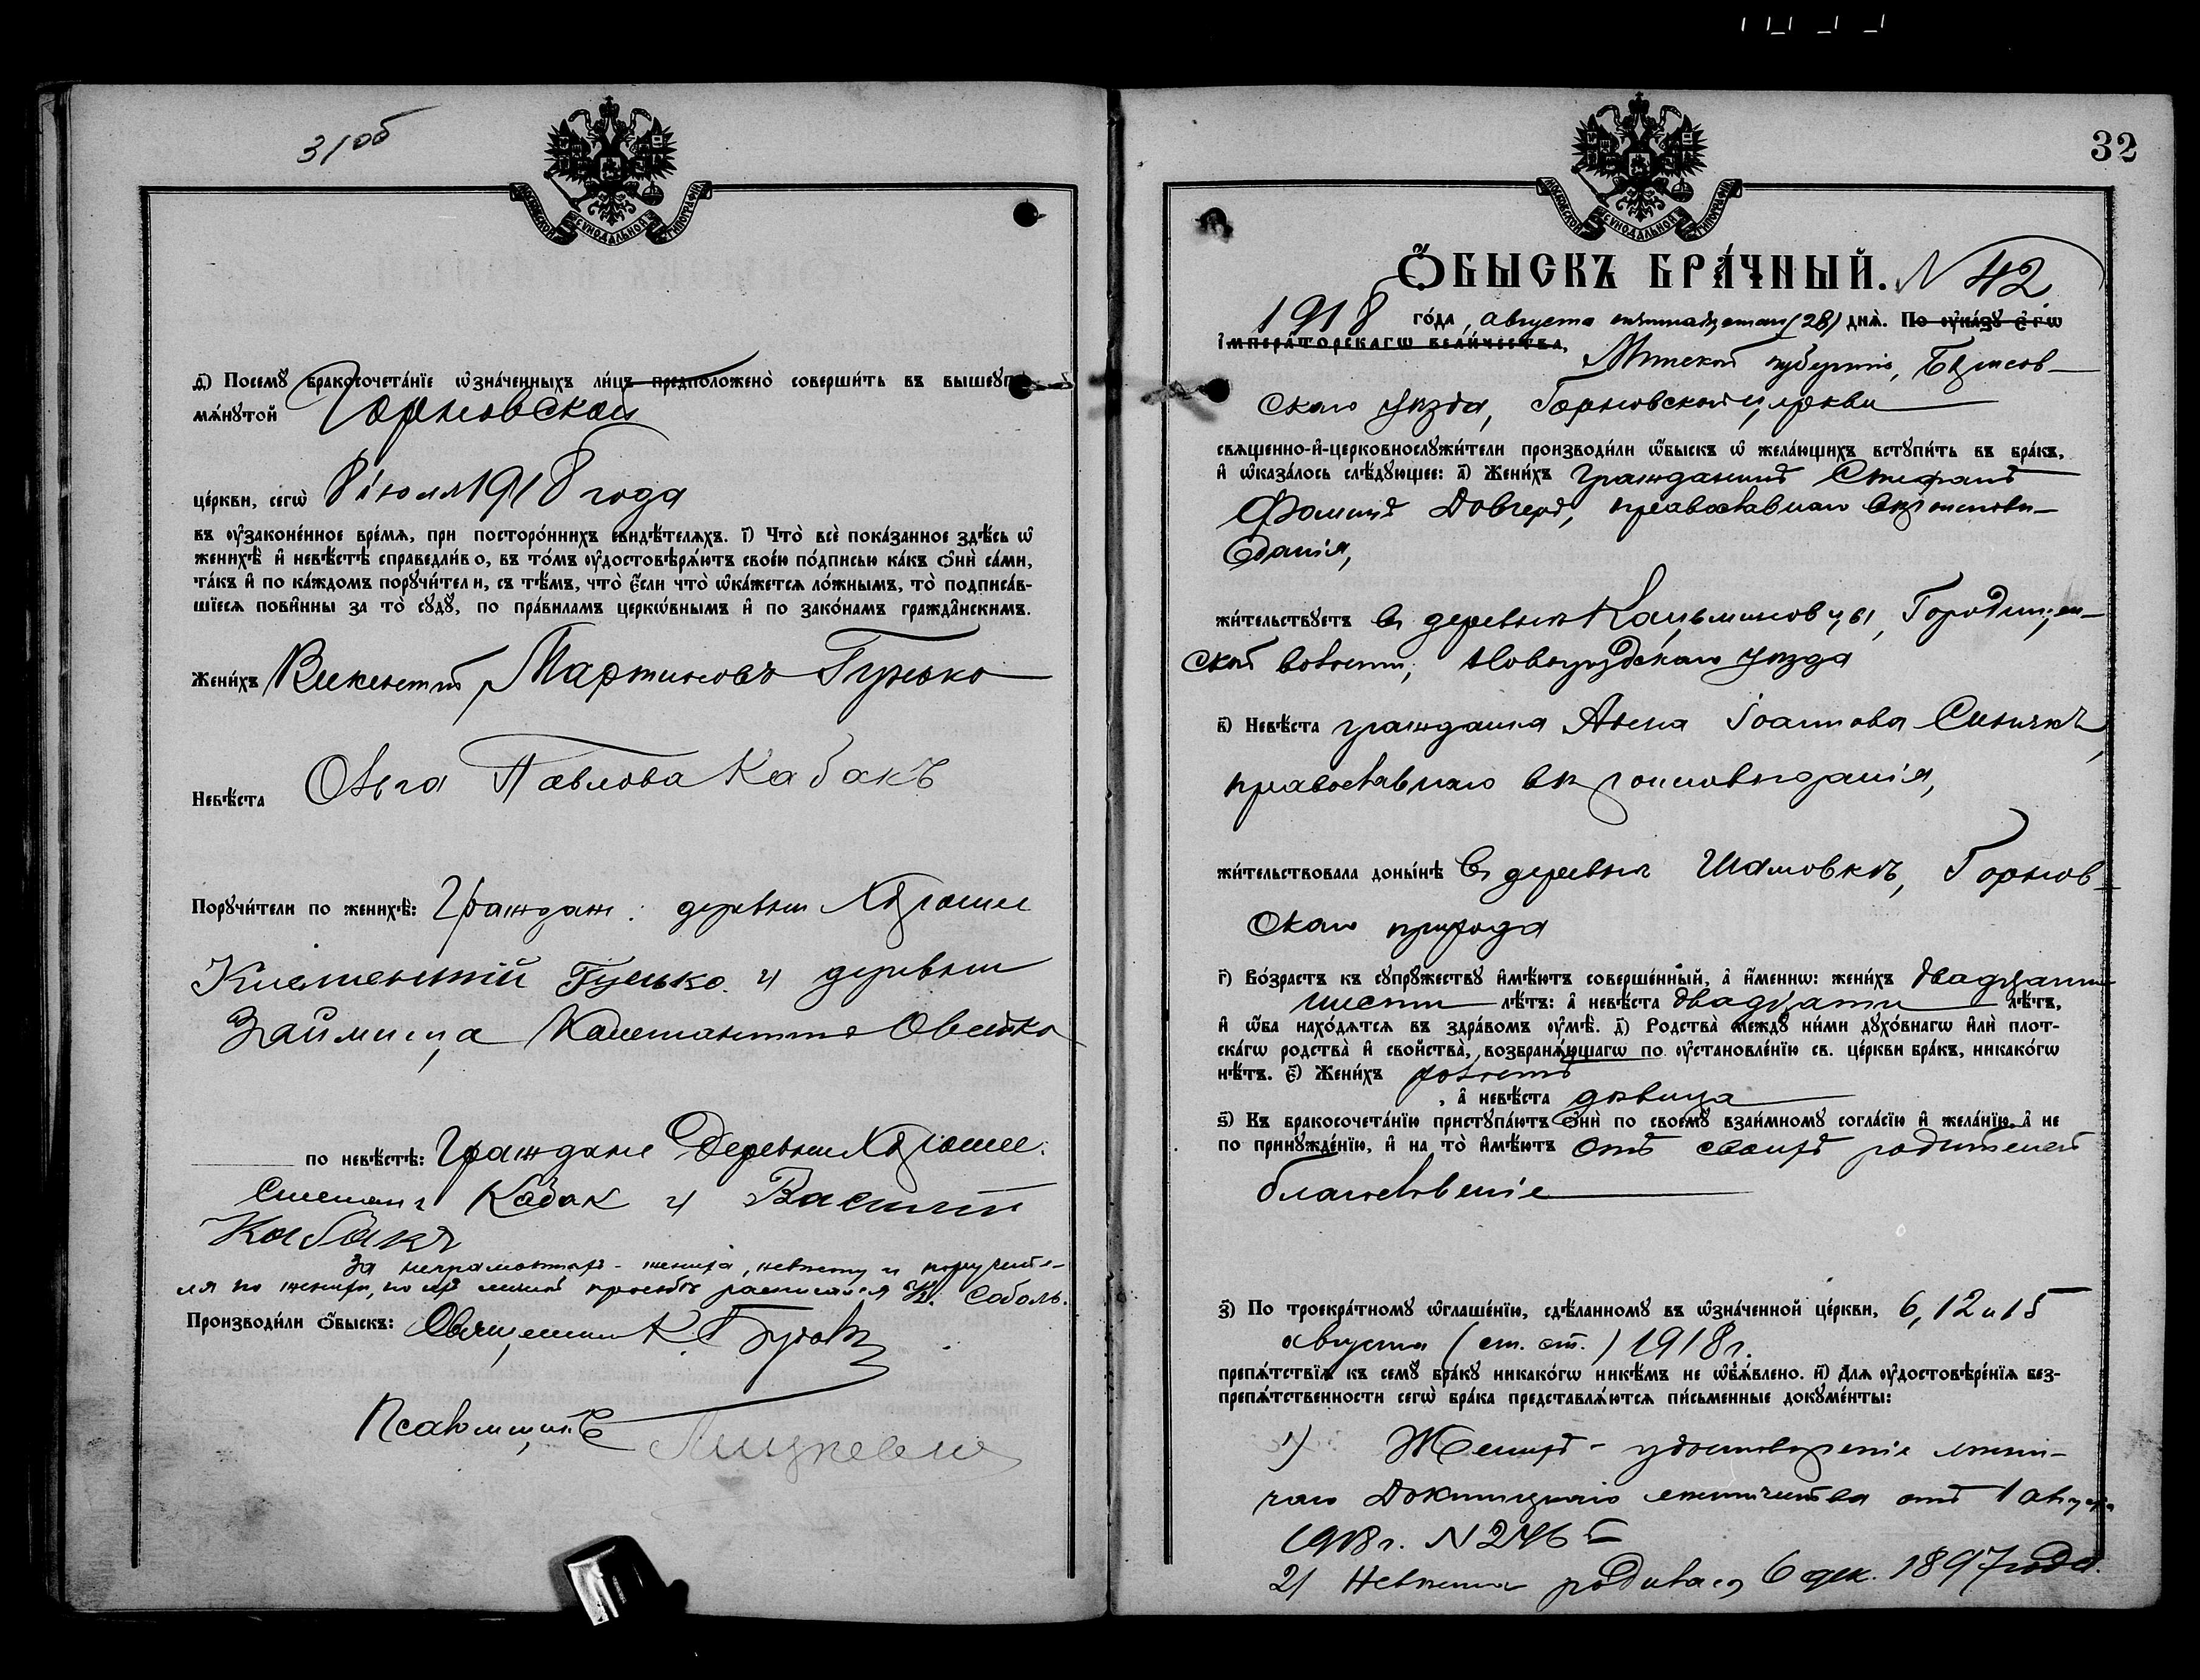 31об
МОСКОВСКОЙ СѴНОДАЛЬНОЙ ТИПОГРАФІИ
д҃) Посемꙋ бракосочета́нїе ѡ҆зна́ченныхъ ли́цъ предположено̀ соверши́ть въ вышеꙋп
мѧ́нꙋтой Горновской
це́ркви, сегѡ̀ 8 іюля 1918 года
въ ᲂу҆зако́ненное вре́мѧ, при посторо́ннихъ свидѣ́телѧхъ. і҃) Что̀ всѐ пока́занное здѣ́сь ѡ҆
женихѣ̀ и҆ невѣ́стѣ справедли́во, въ то́мъ ᲂу҆достовѣрѧ́ютъ свое́ю по́дписью ка́къ ѻ҆нѝ са́ми,
та́къ и҆ по ка́ждомъ порꙋчи́тели, съ тѣ́мъ, что̀ є҆́сли что̀ ѡ҆ка́жетсѧ ло́жнымъ, то̀ подписа́в-
шїесѧ пови́нны за то̀ сꙋдꙋ̀, по пра́виламъ церкѡ́внымъ и҆ по зако́намъ гражда́нскимъ.
Жени́хъ Викентій Мартиновъ Гунько
Невѣ́ста Ольга Павлова Кабакъ
Порꙋчи́тели по женихѣ̀: Граждан: деревни
Климентій Гунько и деревни
Займища Константинъ Овсейко
по невѣ́стѣ: Граждане деревни
Степанъ Кабак и Василій
Кабакъ
За неграмотныхъ - жениха, невѣсту и поручите-
ля по женихѣ, по их личной просьбѣ расписался Соболь.
Производи́ли ѻ҆́быскъ: Священникъ К.
Псаломщикъ Мицкевич
32
МОСКОВСКОЙ СѴНОДАЛЬНОЙ ТИПОГРАФІИ
Ѻ҆́БЫСКЪ БРА́ЧНЫЙ. N 42
1918 го́да, августа пятнадцатаго (28) днѧ̀. По ᲂу҆ка́зꙋ є҆гѡ̀
І҆мпера́торскагѡ вели́чества, Минской губерніи, Борисов-
скаго уѣзда, Горновской церкви
свѧще́нно-и҆-церковнослꙋжи́тели производи́ли ѻ҆́быскъ ѡ҆ жела́ющихъ встꙋпи́ть въ бра́къ,
и҆ ѡ҆каза́лось слѣ́дꙋющее: а҃) Жени́хъ гражданинъ Стефанъ
Фоминъ Довгердъ, православнаго вѣроисповѣ-
данія,
жи́тельствꙋетъ въ деревнѣ Кацьминовцы, Городищен-
ской волости, Новогрудскаго уѣзда
в҃) Невѣ́ста гражданка Анна Іоаннова Синичкъ,
православнаго вѣроисповѣданія,
жи́тельствовала доны́нѣ въ деревнѣ Шамовкѣ, Горнов-
скаго прихода
г҃) Во́зрастъ къ сꙋпрꙋ́жествꙋ и҆мѣ́ютъ соверше́нный, а҆ и҆́меннѡ: жени́хъ двадцати
шести лѣ́тъ: а҆ невѣ́ста двадцати лѣ́тъ,
и҆ ѻ҆́ба нахо́дѧтсѧ въ здра́вомъ ᲂу҆мѣ̀. д҃) Родства̀ междꙋ̀ ни́ми дꙋхо́внагѡ и҆лѝ плот-
ска́гѡ родства̀ и҆ сво́йства̀, возбранѧ́ющагѡ по ᲂу҆становле́нїю св. це́ркви бра́къ, никако́гѡ
нѣ́тъ. є҃) Жени́хъ холостъ
, а҆ невѣ́ста дѣвица
ѕ҃) Къ бракосочета́нїю пристꙋпа́ютъ ѻ҆нѝ по своемꙋ̀ взаи́мномꙋ согла́сїю и҆ жела́нїю, а҆ не
по принꙋжде́нїю, и҆ на то̀ и҆мѣ́ютъ отъ своихъ родителей
благословеніе
з҃) По троекра́тномꙋ ѡ҆глаше́нїю, сдѣ́ланномꙋ въ ѡ҆зна́ченной це́ркви, 6, 12 и 15
августа (ст. ст.) 1918 г.
препѧ́тствїѧ къ семꙋ̀ бра́кꙋ никако́гѡ никѣ́мъ не ѡ҆б̾ѧ́влено. и҃) Длѧ ᲂу҆достовѣре́нїѧ без-
препѧ́тственности сегѡ̀ бра́ка представлѧ́ютсѧ пи́сьменные докꙋме́нты:
1) Женихъ - удостовѣреніе лѣсни-
чаго Докшицкаго лѣсничества отъ 1 августа
1918 г. N
2) Невѣста родилась 6 дек. 1897 года.